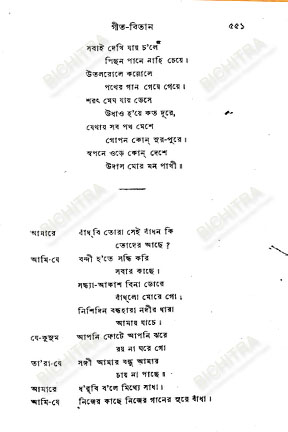 গীত-বিতান ৫৫১
সবাই দেখি যায় চ'লে
পিছন পানে নাহি চেয়ে।
উতলরোলে কল্লোলে
পথের গান গেয়ে গেয়ে।
শরৎ মেঘ যায় ভেসে
উধাও হ'য়ে কত দূরে,
যেথায় সব পথ মেশে
গোপন কোন্ সুর-পুরে।
স্বপনে ওড়ে কোন্ দেশে
উদাস মোর মন পাখী॥
আমারে বাঁধ্‌বি তোরা সেই বাঁধন কি
তোদের আছে?
আমি-যে বন্দী হ'তে সন্ধি করি
সবার কাছে।
সন্ধ্যা-আকাশ বিনা ডোরে
বাঁধ্‌লো মোরে গো।
নিশিদিন বন্ধহারা নদীর ধারা
আমায় যাচে।
যে-কুসুম আপনি ফোটে আপনি ঝরে
রয় না ঘরে গো।
তা'রা-যে সঙ্গী আমার বন্ধু আমার
চায় না পাছে॥
আমারে ধ'র্‌বি ব'লে মিথ্যে সাধা।
আমি-যে নিজের কাছে নিজের গানের সুরে বাঁধা।
BICHITRA